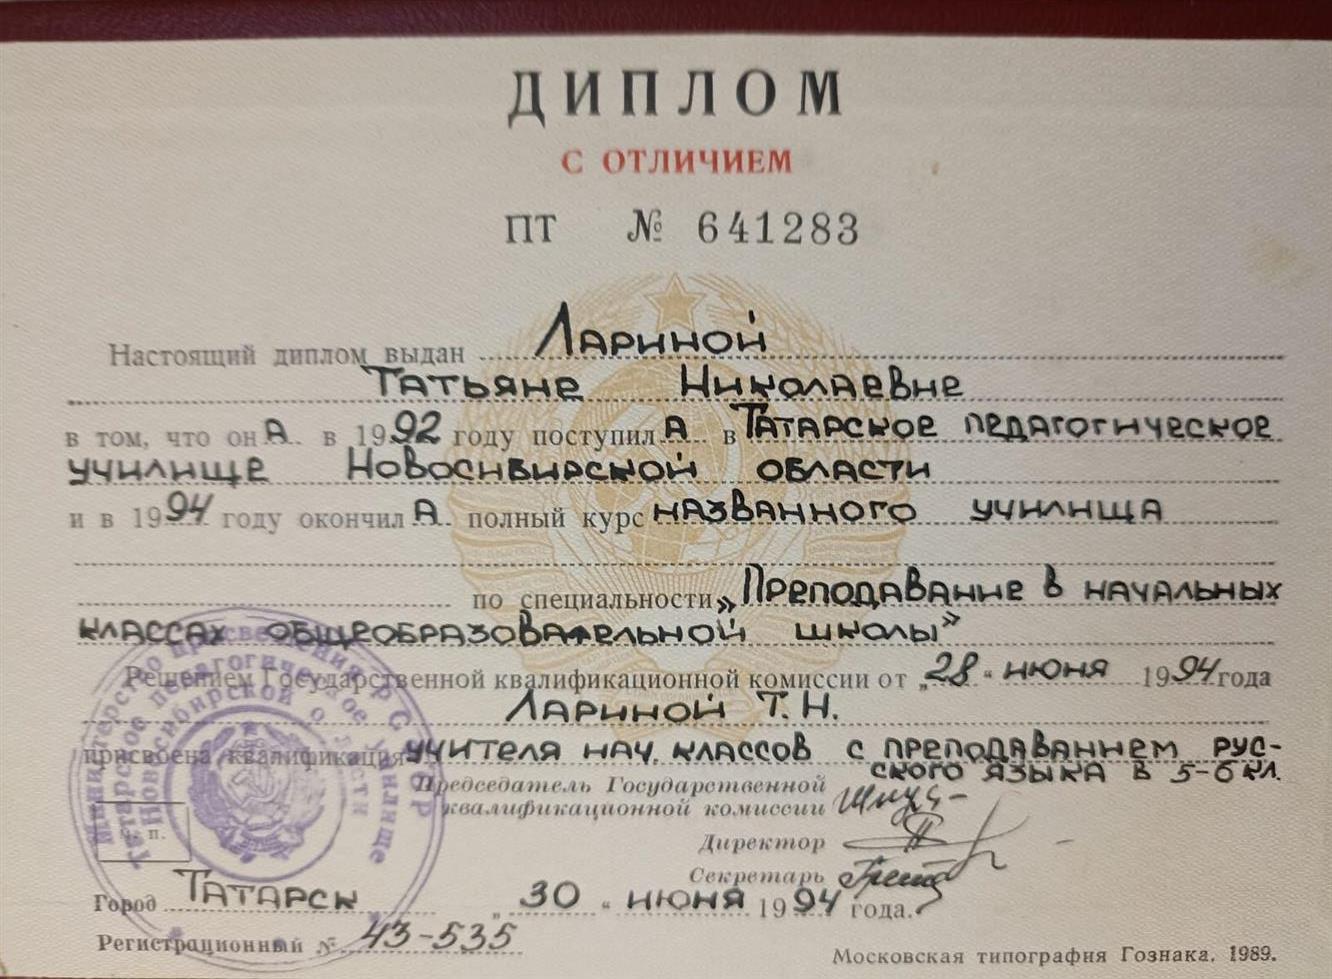 ДИПЛОМ
С ОТЛИЧИЕМ
ПТ № 641283
Настоящий диплом выдан Лариной
Татьяне Николаевне
в том, что он А в 1992 году поступил А в Татарское педагогическое
училище Новосибирской области
и в 1994 году окончил А полный курс названного училища
по специальности „Преподавание в начальных
классах общеобразовательной школы”
Решением Государственной квалификационной комиссии от „28“ июня 1994 года
Лариной Т. Н.
присвоена квалификация учителя нач. классов с преподаванием рус-
ского языка в 5-6 кл.
Председатель Государственной
квалификационной комиссии
Директор
Секретарь
М. п.
Город Татарск „30“ июня 1994 года.
Регистрационный № 43-535
Московская типография Гознака. 1989.
Министерство просвещения РСФСР
Татарское педагогическое училище
Новосибирской области